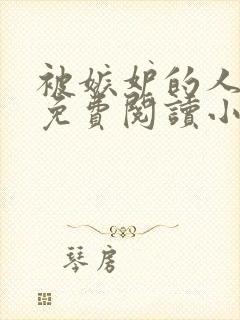 被嫉妒的人
免費閱讀小
琴房